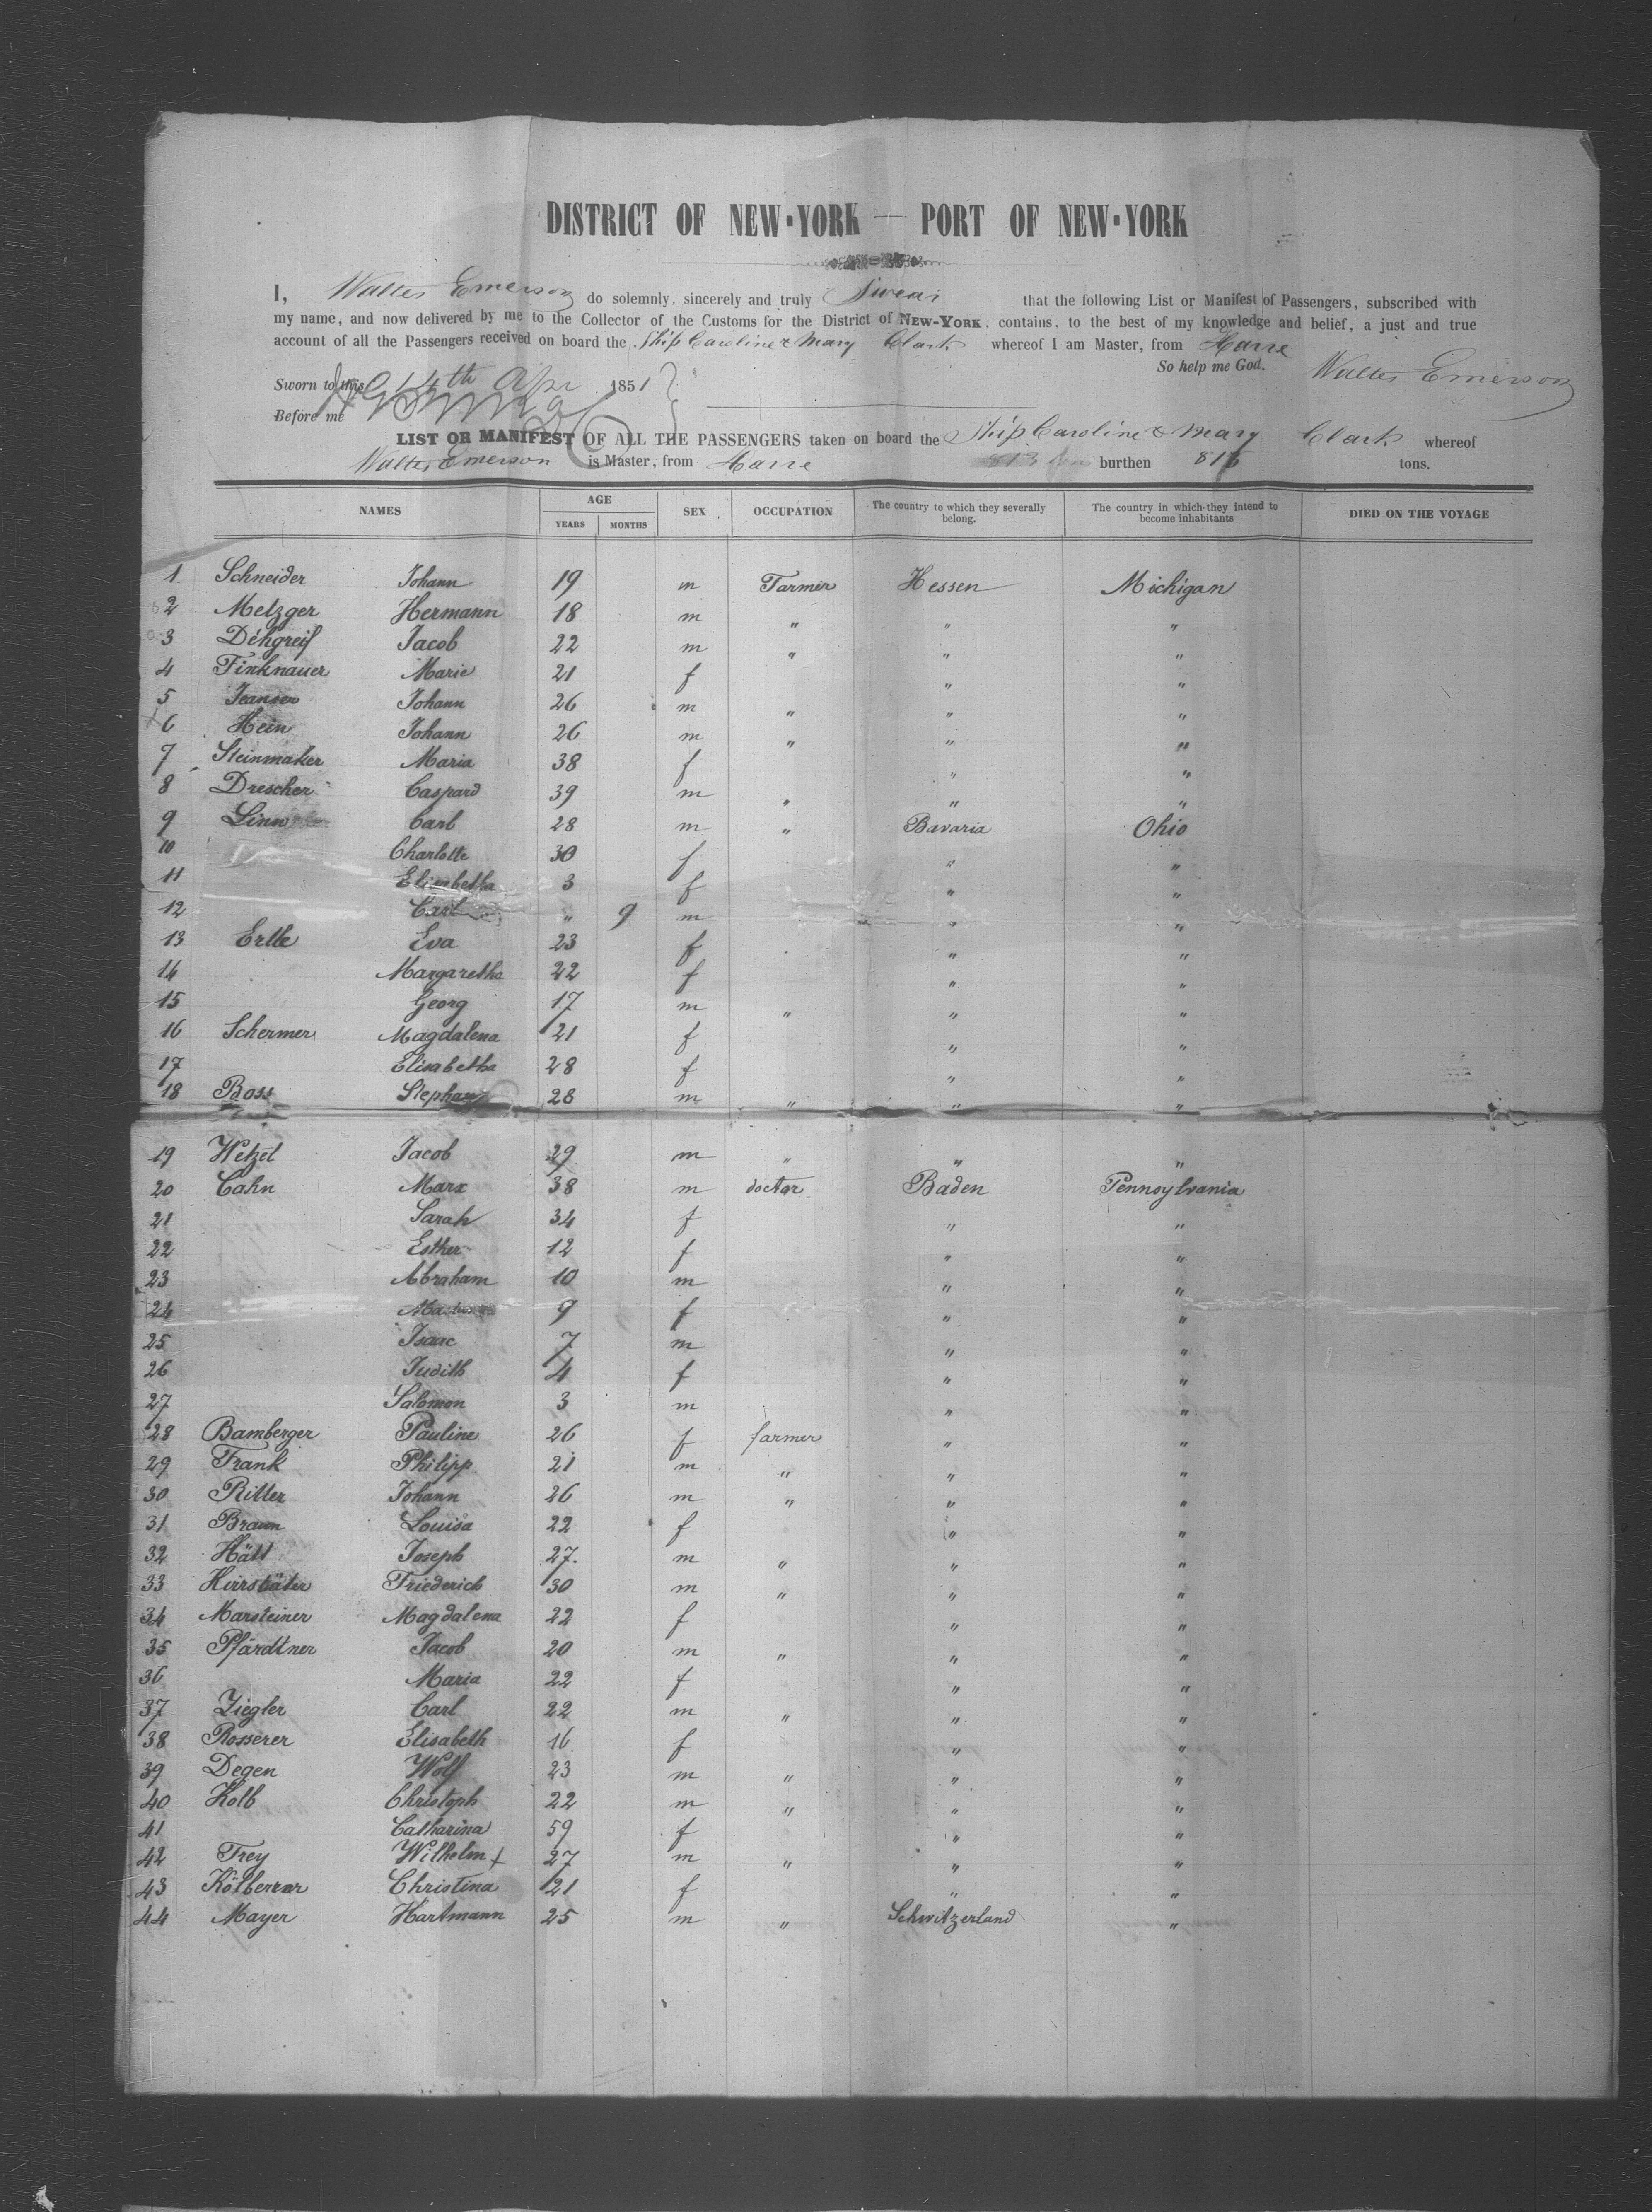 DISTRICT OF NEW-YORK — PORT OF NEW-YORK
I, Walter Emerson do solemnly, sincerely and truly Swear that the following List or Manifest of Passengers, subscribed with
my name, and now delivered by me to the Collector of the Customs for the District of NEW-YORK, contains, to the best of my knowledge and belief, a just and true
account of all the Passengers received on board the Ship Caroline & Mary Clark whereof I am Master, from Havre
So help me God. Walter Emerson
Sworn to this 14th Apr 1851
Before me
LIST OR MANIFEST OF ALL THE PASSENGERS taken on board the Ship Caroline & Mary Clark whereof
Walter Emerson is Master, from Havre burthen tons.
NAMES AGE YEARS MONTHS SEX OCCUPATION The country to which they severally belong. The country in which they intend to become inhabitants DIED ON THE VOYAGE
1 Schneider Johann 19 m Farmer Hessen Michigan
2 Metzger Hermann 18 m " " "
3 Dehgreif Jacob 22 m " " "
4 Finknauer Marie 21 f " "
5 Johann 26 m " " "
6 Hein Johann 26 m " " "
7 Steinmaker Maria 38 f " "
8 Drescher Caspard 39 m " " "
9 Linn Carl 28 m " Bavaria Ohio
10 Charlotte 30 f " "
11 Elisabetha 3 f " "
12 Carl " 9 m " "
13 Ertle Eva 23 f " "
14 Margaretha 22 f " "
15 Georg 17 m " " "
16 Schermer Magdalena 21 f " "
17 Elisabetha 28 f " "
18 Boss Stephan 28 m " " "
19 Wetzel Jacob 29 m " " "
20 Cahn Marx 38 m doctor Baden Pennsylvania
21 Sarah 34 f " "
22 Esther 12 f " "
23 Abraham 10 m " "
24 9 f " "
25 Isaac 7 m " "
26 Judith 4 f " "
27 Salomon 3 m " "
28 Bamberger Pauline 26 f farmer " "
29 Frank Philipp 21 m " " "
30 Ritter Johann 26 m " " "
31 Braun Louisa 22 f " "
32 Hätt Joseph 27 m " " "
33 Friederich 30 m " " "
34 Marsteiner Magdalena 22 f " "
35 Pfärdtner Jacob 20 m " " "
36 Maria 22 f " "
37 Ziegler Carl 22 m " " "
38 Rosserer Elisabeth 16 f " "
39 Degen Wolf 23 m " " "
40 Kolb Christoph 22 m " " "
41 Catharina 59 f " "
42 Frey Wilhelm 27 m " " "
43 Christina 21 f " "
44 Mayer Hartmann 25 m " Schwitzerland "